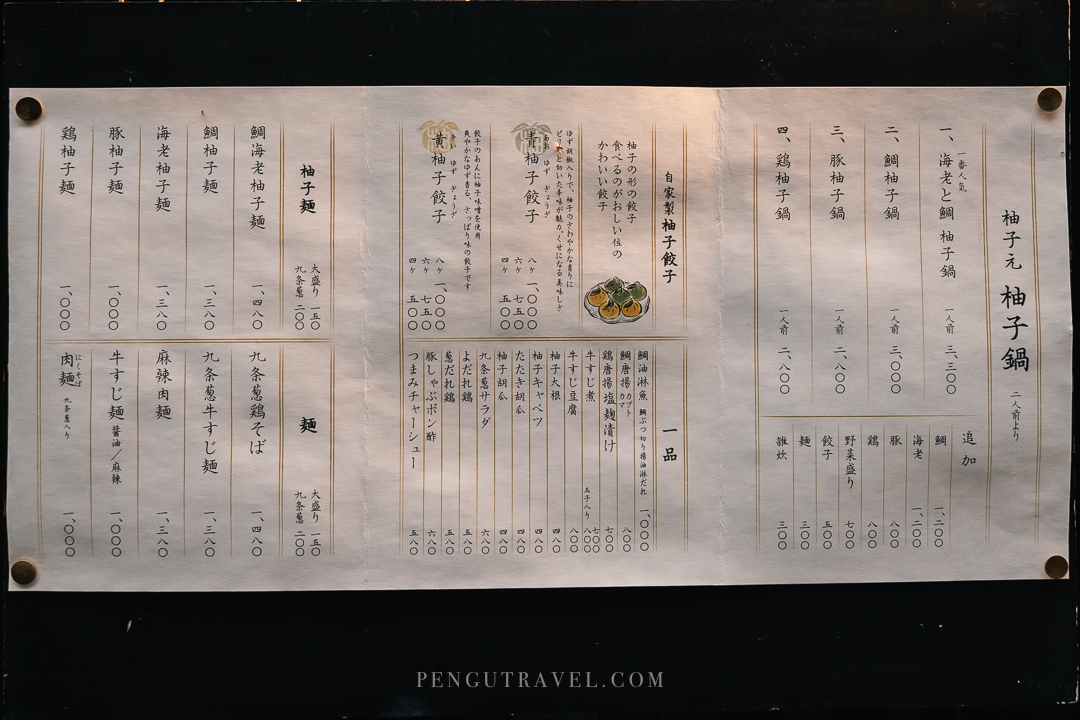 柚子元 柚子鍋 二人前より
一番人気
一、海老と鯛 柚子鍋 一人前 三、三〇〇
二、鯛柚子鍋 一人前 三、〇〇〇
三、豚柚子鍋 一人前 二、八〇〇
四、鶏柚子鍋 一人前 二、八〇〇
追加
鯛 一、二〇〇
海老 一、二〇〇
豚 八〇〇
鶏 八〇〇
野菜盛り 七〇〇
餃子 五〇〇
麺 三〇〇
雑炊 三〇〇
自家製 柚子餃子
柚子の形の餃子
食べるのがおしい位の
かわいい餃子
ゆず胡椒入りで、柚子のさわやかな香りに
ピリッと効いた辛味が魅力。くせになる美味しさ
あお ゆず ぎょうざ
青柚子餃子
八ヶ 一、〇〇〇
六ヶ 七五〇
四ヶ 五〇〇
餃子のあんに柚子味噌を使用
爽やかなゆず香る、さっぱり味の餃子です
き ゆず ぎょうざ
黄柚子餃子
八ヶ 一、〇〇〇
六ヶ 七五〇
四ヶ 五〇〇
一品
鯛油淋魚 鯛ぶつ切り揚油淋だれ 一、〇〇〇
鯛唐揚 カブト カマ 八〇〇
鶏唐揚 塩麹漬け 七〇〇
牛すじ煮 七〇〇
玉子入り 八〇〇
牛すじ豆腐 八〇〇
柚子大根 四八〇
柚子キャベツ 四八〇
たたき胡瓜 四八〇
柚子胡瓜 四八〇
九条葱サラダ 六八〇
よだれ鶏 五八〇
葱だれ鶏 五八〇
豚しゃぶポン酢 六八〇
つまみチャーシュー 五八〇
柚子麺
大盛り 一五〇
九条葱 二〇〇
鯛海老柚子麺 一、四八〇
鯛柚子麺 一、三八〇
海老柚子麺 一、三八〇
豚柚子麺 一、〇〇〇
鶏柚子麺 一、〇〇〇
麺
大盛り 一五〇
九条葱 二〇〇
九条葱鶏そば 一、四八〇
九条葱牛すじ麺 一、三八〇
麻辣肉麺 一、三八〇
牛すじ麺 醤油／麻辣 一、〇〇〇
にくそば
肉麺 九条葱入り 一、〇〇〇
PENGUTRAVEL.COM